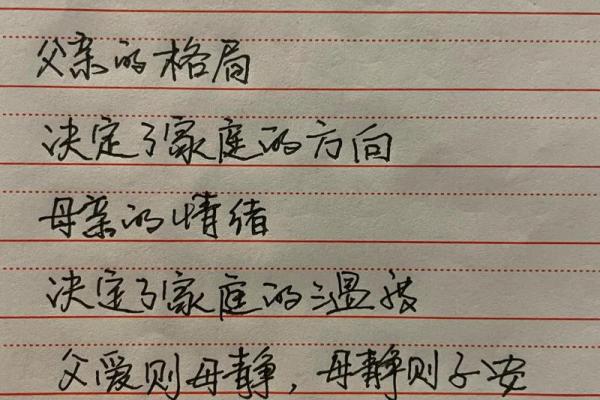 父亲的格局
决定了家庭的方向
母亲的情绪
决定了家庭的温度
父爱则母静，母静则子安